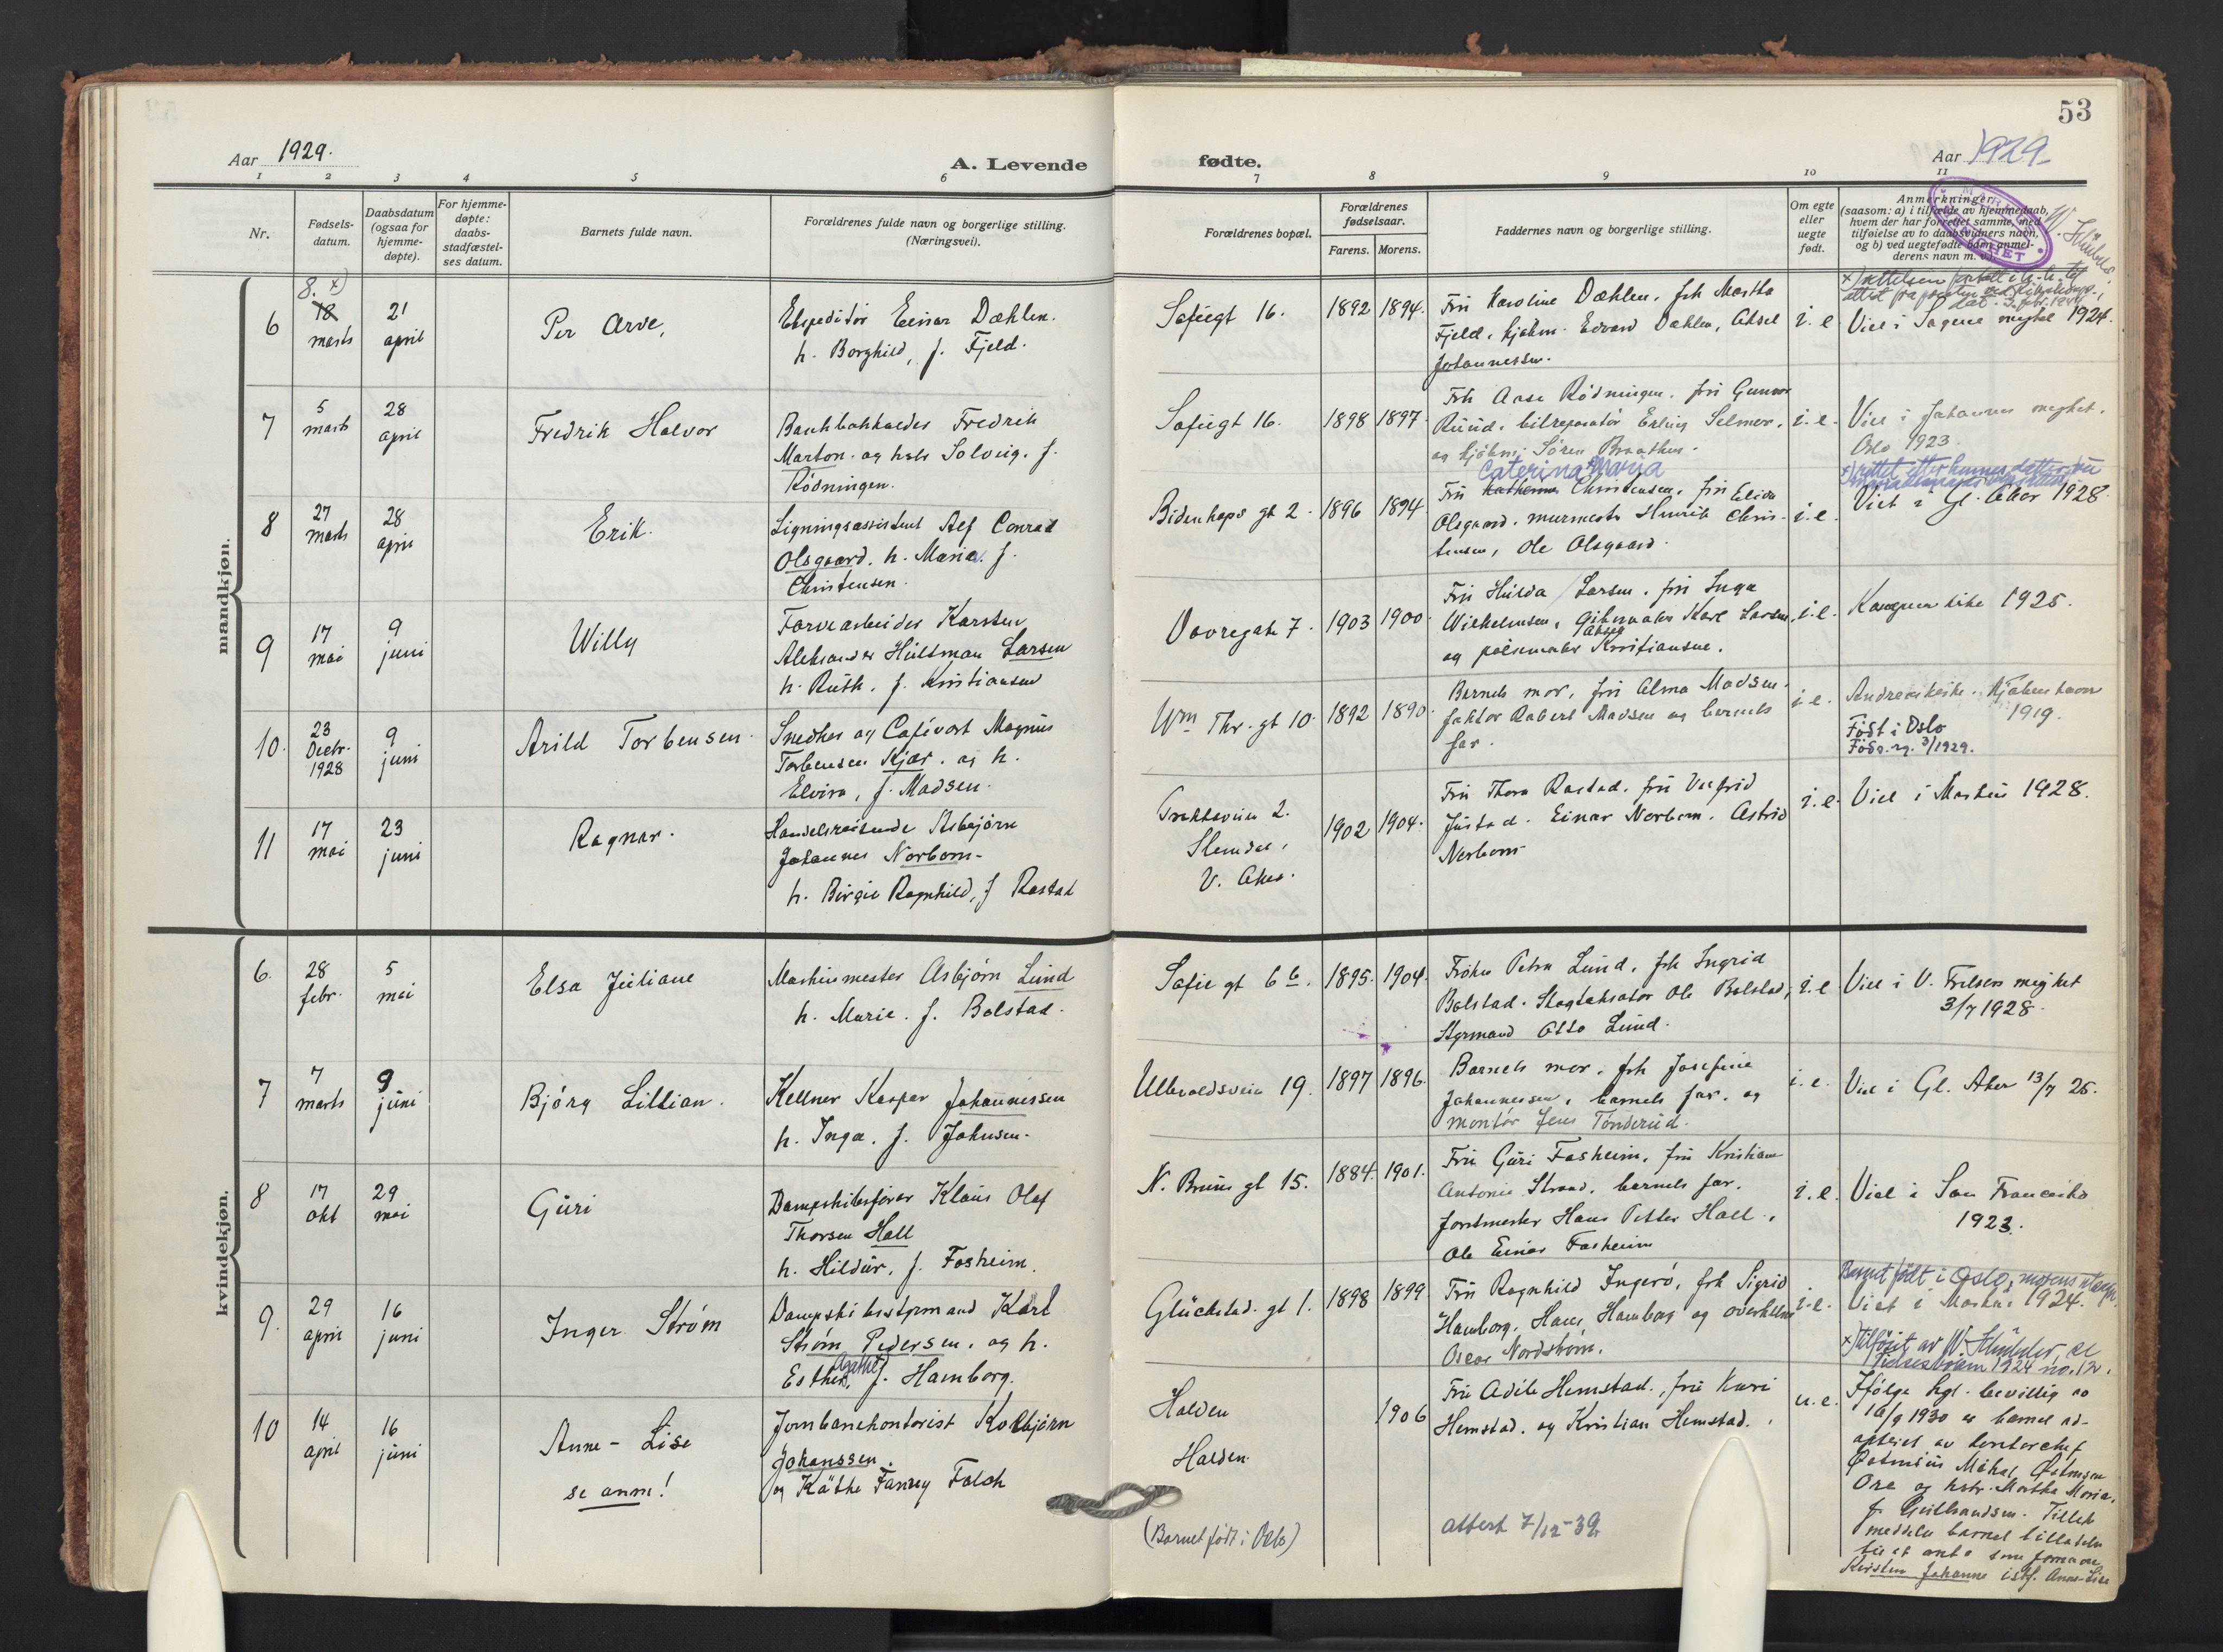 53
Aar 1929.
A. Levende
fødte.
Aar 1929
1 2 3 4 5 6 7 8 9 10 11
Nr.
Fødsels-
datum.
Daabsdatum
(ogsaa for
hjemme-
døpte).
For hjemme-
døpte:
daabs-
stadfæstel-
ses datum.
Barnets fulde navn.
Forældrenes fulde navn og borgerlige stilling.
(Næringsvei).
Forældrenes bopæl.
Forældrenes
fødselsaar.
Farens. Morens.
Faddernes navn og borgerlige stilling.
Om egte
eller
uegte
født.
Anmerkninger
(saasom: a) i tilfælde av hjemmedaab,
hvem der har forrettet samme, med
tilføielse av to daabsvidners navn,
og b) ved uegtefødte barn anmel-
derens navn m. v.).
mandkjøn.
6
8. x)
18
marts
21
april
Per Arve,
Ekspeditør Einar Dæhlen.
h. Borghild, f. Fjeld.
Sofiegt 16.
1892 1894.
Fru Karoline Dæhlen, frk Martha
Fjeld, kjøbm. Edvard Dæhlen, Aksel
Johannessen.
i. e.
Viet i Sagene meghet 1924.
7
5
marts
28
april
Fredrik Halvor
Bankbokholder Fredrik
Marton og hstr Solveig, f.
Rödningen.
Sofiegt 16.
1898 1897.
Frk Aase Rödningen, fru Gunvor
Ruud, bilreparatör Erling Selmer,
og kjöbm. Sören Braathen.
i. e.
Viet i Johannes meghet.
Oslo 1923.
8
27
marts
28
april
Erik.
Ligningsassistent Alf Conrad
Olsgaard. h. Maria f.
Christensen.
Bidenkaps gt 2.
1896 1894
Caterina Marya
Fru Christensen, fru Elida
Olsgaard, murmester Henrik Chris-
tensen, Ole Olsgaard.
i. e.
Viet i Gl. Aker 1928.
9
17
mai
9
juni
Willy
Farvearbeider Karsten
Aleksander Hultman Larsen
h. Ruth, f. Kristiansen
Vovregate 7.
1903 1900.
Fru Hulda Larsen, fru Inga
Wilhelmsen, Karl Larsen,
og Kristiansen.
i. e.
1925.
10.
23
Decbr.
1928
9
juni
Arild Torbensen.
Snedker og Cafévert Magnus
Torbensen Kjær. og h.
Elvira, f. Madsen.
Wm Thr. gt 10.
1892 1890.
Barnets mor, fru Alma Madsen,
faktor Robert Madsen og barnets
far.
i. e.
Andreaskirke. Kjøbenhavn
1919.
Född i Oslo
Föds.rg. 3/1929.
11
17
mai
23
juni
Ragnar.
Handelsreisende Asbjørn
Johannes Norbom.
h. Birgit Ragnhild, f Rastad
Slemdal,
V. Aker.
1902 1904.
Fru Thora Rastad, fru Valfrid
Justad. Einar Norbom. Astrid
Norbom
i. e.
Viet i Markus 1928.
kvindekjøn.
6.
28
febr.
5
mai
Elsa Juliane
Maskinmester Asbjørn Lund
h. Marie. f. Bolstad.
Sofie gt 6 b.
1895. 1904.
Frøken Petra Lund, frk Ingrid
Bolstad. Ole Bolstad,
Styrmand Otto Lund.
i. e.
Viet i V. Frelsers meghet
3/7 1928.
7
7
marts
9
juni
Björg Lillian.
Kellner Kasper Johannessen
h. Inga. f. Johnsen.
Ullevaldsveien 19.
1897 1896.
Barnets mor, frk Josefine
Johannessen, barnets far, og
montör Jens Tönderud.
i. e.
Viet i Gl. Aker 13/7 25.
8
17
okt
29
mai
Guri
Dampskibsfører Klaus Olaf
Thorsen Hall
h. Hildur, f. Fosheim.
N. Bruns gt 15.
1884. 1901.
Fru Guri Fosheim, fru Kristiane
Antonie Strand, barnets far,
forstmester Hans Petter Hall,
Ole Einar Fosheim
i. e.
Viet i San Francisko
1923.
9.
29
april
16
juni
Inger Strøm
Dampskibsstyrmand Karl
Strøm Pedersen, og h.
Esther, Agathe x) f. Hamborg.
Glückstad. gt 1.
1898 1899
Fru Ragnhild Ingerö, frk Sigrid
Hamborg, Hans Hamborg og overkellner
Oscar Nordström.
i. e.
Barnet født i Oslo,
Viet i Markus 1924.
x) Tilföiet av W.
1924 no. 12.
10
14
april
16
juni
Anne-Lise
se anm!
Jernbanekontorist Kolbjørn
Johanssen.
og Käthe Fanny Falch
Halden
Halden.
(Barnet født i Oslo)
1906
Fru Adile Hemstad, fru Kari
Hemstad, og Kristian Hemstad.
attest 7/12-39
u. e.
Ifølge kgl. bevillig av
16/9 1930 er barnet ad-
opteret av kontorchef
Ore og hstr. Martha Marie,
f. Gulbrandsen. Tillik
meddeles barnet tilladelse
til at anta som fornavn
Kirsten Johanne istf. Anne-Lise